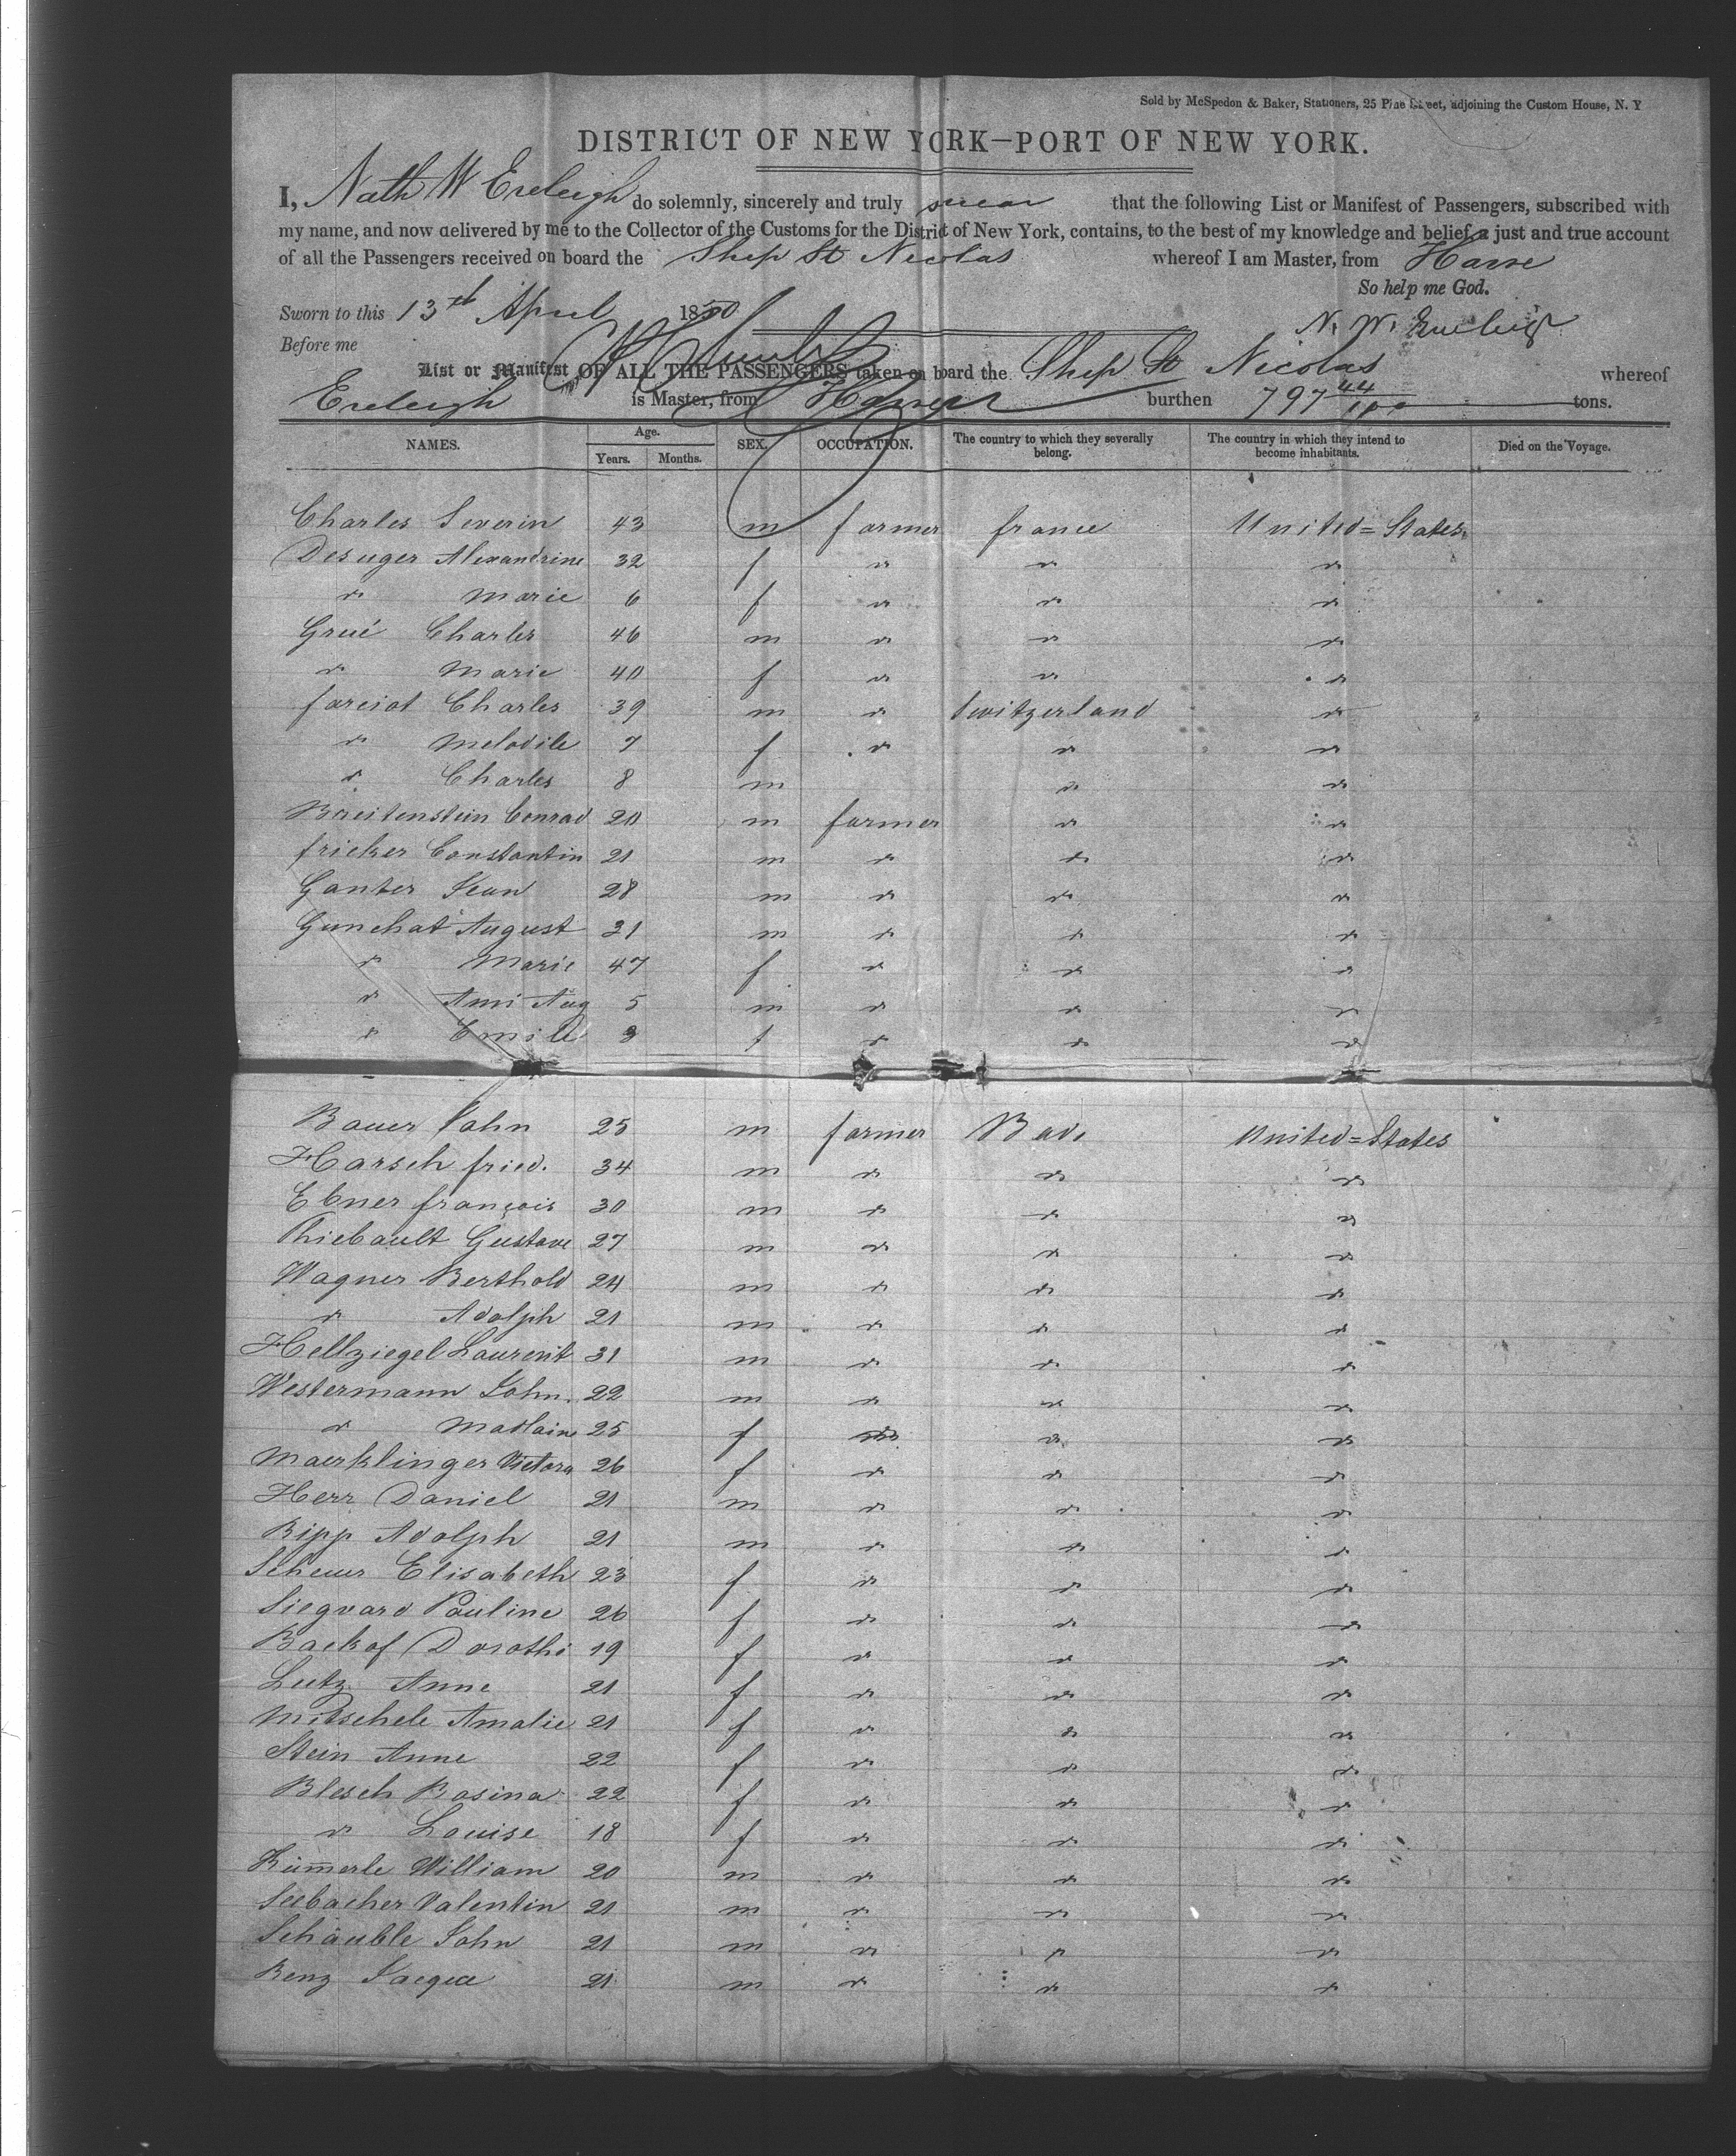 Sold by McSpedon & Baker, Stationers, 25 Pine Street, adjoining the Custom House, N. Y
DISTRICT OF NEW YORK—PORT OF NEW YORK.
I, Nath W Eveleigh do solemnly, sincerely and truly swear that the following List or Manifest of Passengers, subscribed with
my name, and now delivered by me to the Collector of the Customs for the District of New York, contains, to the best of my knowledge and belief, a just and true account
of all the Passengers received on board the Ship St Nicolas whereof I am Master, from Havre
So help me God.
Sworn to this 13th April 1850
N. W. Eveleigh
Before me
List or Manifest OF ALL THE PASSENGERS taken on board the Ship St Nicolas whereof
Eveleigh is Master, from Havre burthen 797 44/100 tons.
NAMES. Age. Years. Months. SEX. OCCUPATION. The country to which they severally belong. The country in which they intend to become inhabitants. Died on the Voyage.
Charles Severin 43 m farmer france United=States
Desuger Alexandrine 32 f " " "
" Marie 6 f " " "
Grué Charles 46 m " " "
" Marie 40 f " " "
farciot Charles 39 m " Switzerland "
" Melodile 7 f " " "
" Charles 8 m " "
Breitenstein Conrad 20 m farmer " "
fricker Constantin 21 m " " "
Ganter Jean 28 m " " "
Gunchat August 31 m " " "
" Marie 47 f " " "
" Ami Aug 5 m " " "
" Emile 3 f " " "
Bauer John 25 m farmer Bade United=States
Harsch fried. 34 m " " "
Ebner françois 30 m " " "
Thiebault Gustave 27 m " " "
Wagner Berthold 24 m " " "
" Adolph 21 m " " "
Hellziegel Laurent 31 m " " "
Westermann John. 22 m " " "
" Madlaine 25 f " " "
Maerklinger Victora 26 f " " "
Herr Daniel 21 m " " "
Ripp Adolph 21 m " " "
Scheur Elisabeth 23 f " " "
Siegvard Pauline 26 f " " "
Backof Dorothi 19 f " " "
Lutz Anne 21 f " " "
Mitschele Amalie 21 f " " "
Stein Anne 22 f " " "
Blesch Rosina 22 f " " "
" Louise 18 f " " "
Kümerle William 20 m " " "
Seebacher Valentin 21 m " " "
Schäuble John 21 m " " "
Benz Jacque 21 m " " "